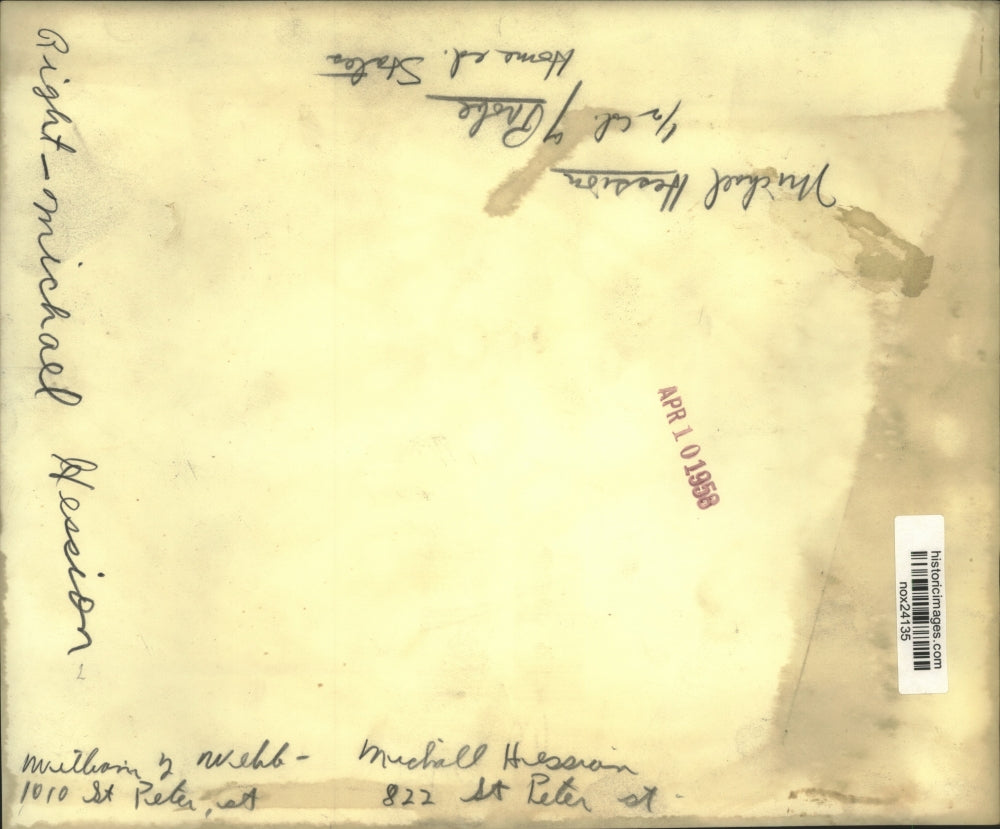 Right - Michael Hession
Michael Hession
1/2 col. of Probe
Home ed. States
APR 10 1958
historicimages.com
nox24135
William Webb -
1010 St Peter, st
Michall Hession
822 St Peter st -